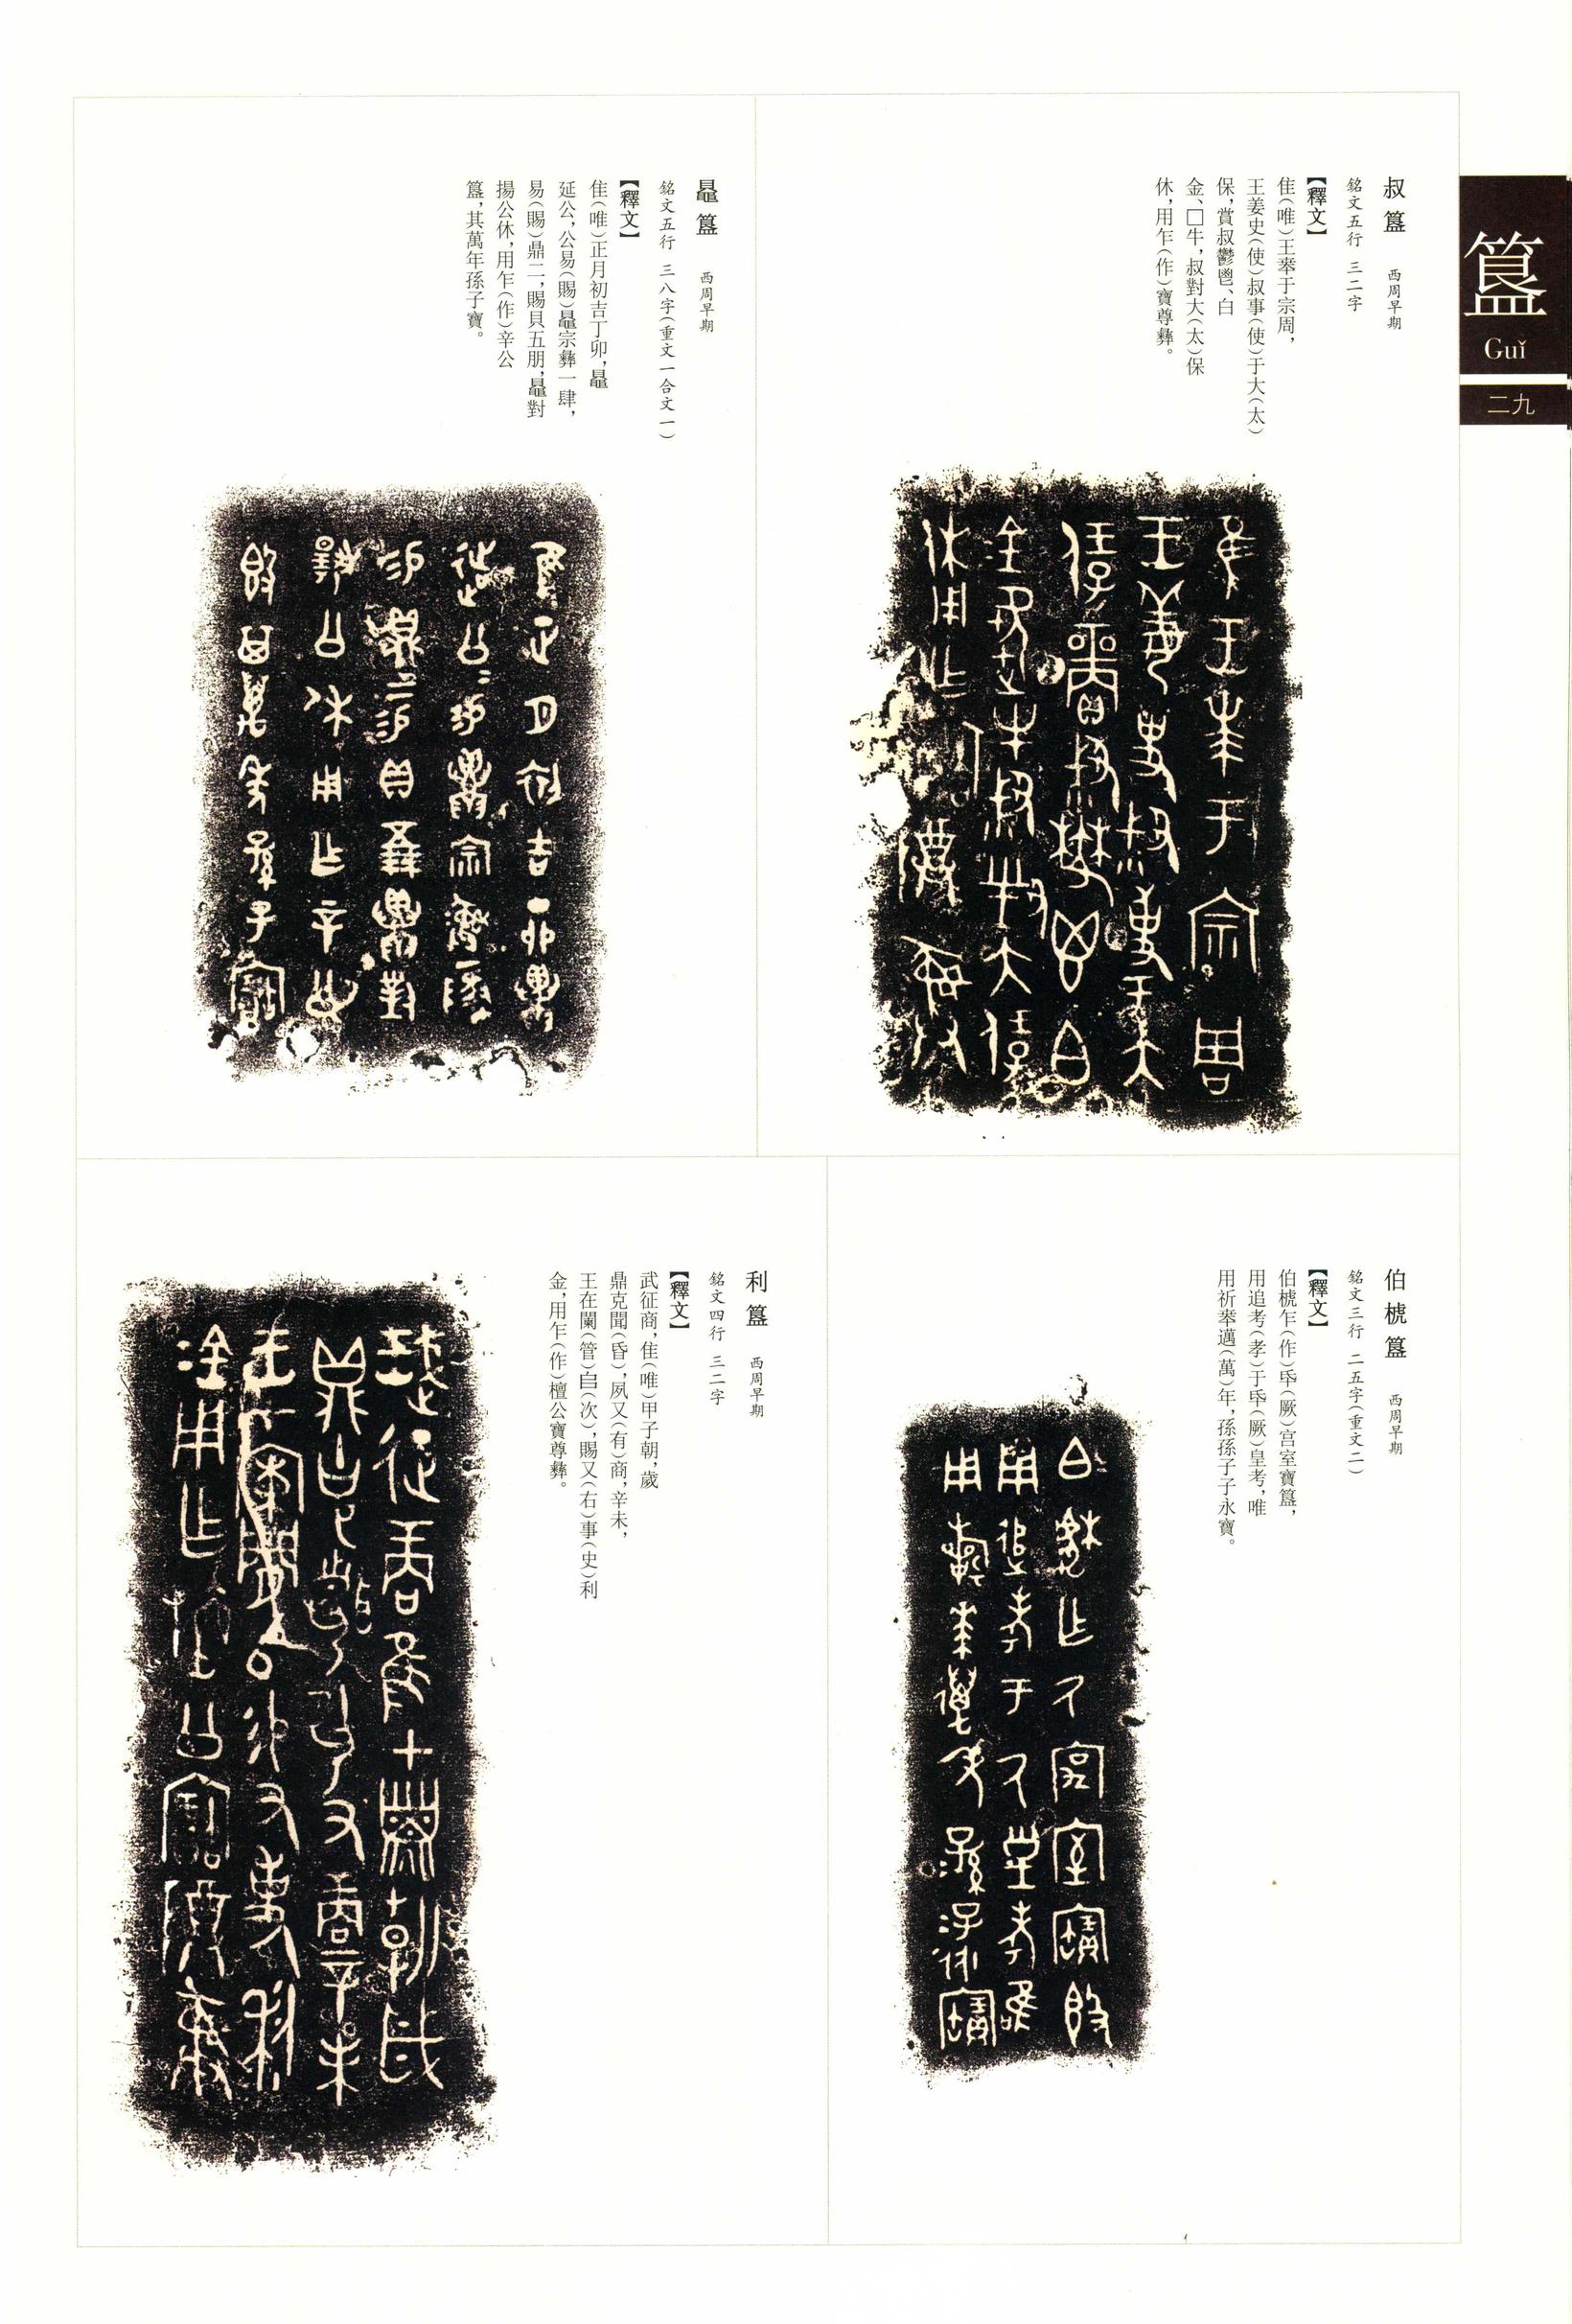 簋
Guǐ
二九
叔簋 西周早期
銘文五行 三二字
【釋文】
隹（唯）王𠦪于宗周，
王姜史（使）叔事（使）于大（太）
保，賞叔鬱鬯、白
金、□牛，叔對大（太）保
休，用乍（作）寶尊彝。
鼂簋 西周早期
銘文五行 三八字（重文一合文一）
【釋文】
隹（唯）正月初吉丁卯，鼂
延公，公易（賜）鼂宗彝一肆，
易（賜）鼎二，賜貝五朋，鼂對
揚公休，用乍（作）辛公
簋，其萬年孫子寶。
伯梡簋 西周早期
銘文三行 二五字（重文二）
【釋文】
伯梡乍（作）氒（厥）宫室寶簋，
用追考（孝）于氒（厥）皇考，唯
用祈𠦪邁（萬）年，孫孫子子永寶。
利簋 西周早期
銘文四行 三二字
【釋文】
武征商，隹（唯）甲子朝，歲
鼎克聞（昏），夙又（有）商，辛未，
王在闌（管）𠂤（次），賜又（右）事（史）利
金，用乍（作）檀公寶尊彝。